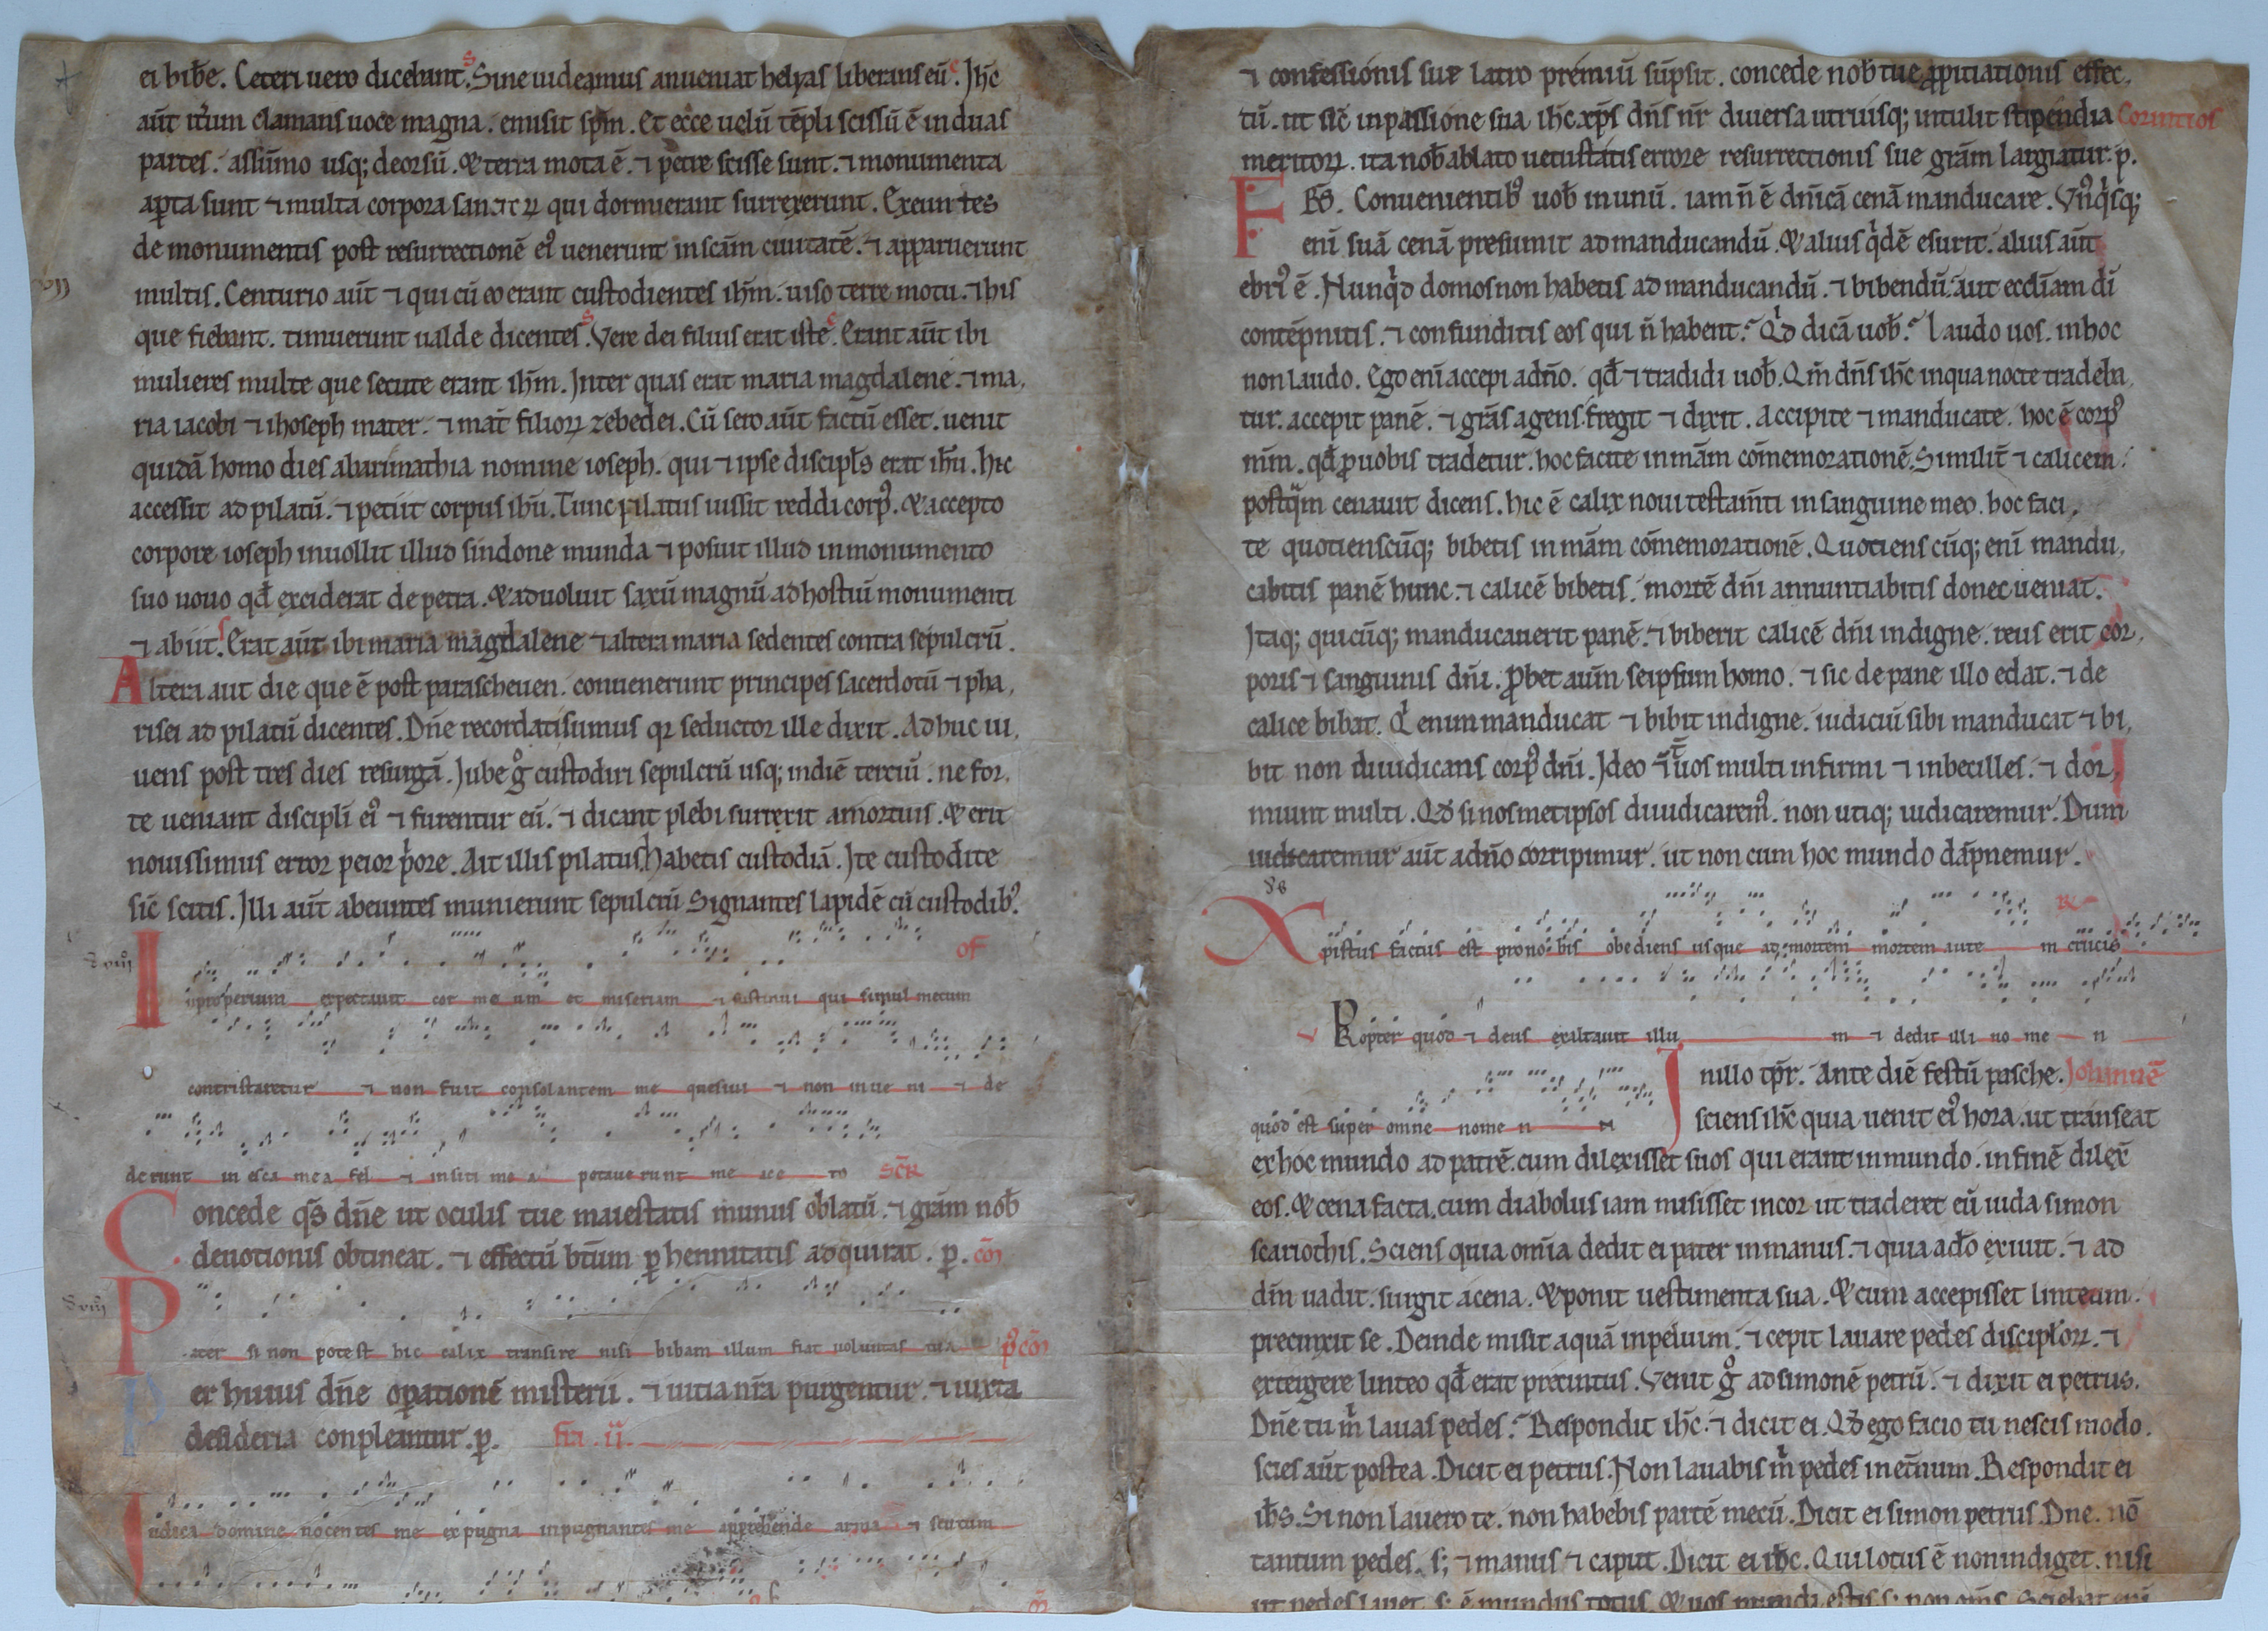 ei bibe. Ceteri uero dicebant. Sine uideamus an ueniat helyas liberans eū. Jhc
aūt itum clamans uoce magna. emisit spm. Et ecce uelū tēpli scissū ē in duas
partes. a sūmo usq; deorsū. & terra mota ē. ⁊ petre scisse sunt. ⁊ monumenta
apta sunt ⁊ multa corpora sanctoꝝ qui dormierant surrexerunt. Exeuntes
de monumentis post resurrectionē ei᾽ uenerunt in scām ciuitatē. ⁊ apparuerunt
multis. Centurio aūt ⁊ qui cū eo erant custodientes ihm. uiso terre motu. ⁊ his
que fiebant. timuerunt ualde dicentes. Vere dei filius erat iste. Erant aūt ibi
mulieres multe que secute erant ihm. Inter quas erat maria magdalene. ⁊ ma,
ria iacobi ⁊ ihoseph mater. ⁊ mat filioꝝ zebedei. Cū sero aūt factū esset. uenit
quidā homo dies ab arimathia nomine ioseph. qui ⁊ ipse discipls erat ihu. hic
accessit ad pilatū. ⁊ petiit corpus ihu. Tunc pilatus iussit reddi corp᾽. & accepto
corpore ioseph inuoluit illud sindone munda ⁊ posuit illud in monumento
suo nouo qd exciderat de petra. & aduoluit saxū magnū ad hostiū monumenti
⁊ abiit. Erat aūt ibi maria magdalene ⁊ altera maria sedentes contra sepulcrū.
Altera aut die que ē post parascheuen. conuenerunt principes sacerdotū ⁊ pha,
risei ad pilatū dicentes. Dne recordati sumus qꝛ seductor ille dixit. Adhuc ui,
uens post tres dies resurgā. Jube g᾽ custodiri sepulcrū usq; in diē terciū. ne for,
te ueniant discipli ei᾽ ⁊ furentur eū. ⁊ dicant plebi surrexit a mortuis. & erit
nouissimus error peior pore. Ait illis pilatus habetis custodiā. Ite custodite
sic scitis. Illi aūt abeuntes munierunt sepulcrū signantes lapidē cū custodib᾽.
of
Inproperium expectauit cor me um et miseriam ⁊ sustinui qui simul mecum
contristaretur ⁊ non fuit consolantem me quesiui ⁊ non inue ni ⁊ de
derunt in esca mea fel ⁊ in siti me a potaue runt me ace to SCR
Concede qs dne ut oculis tue maiestatis munus oblatū. ⁊ grām nob
deuotionis obtineat. ⁊ effectū btum phennitatis adquirat. p. cō
Pater si non potest hic calix transire nisi bibam illum fiat uoluntas tua pcō
Per huius dne opationē misterii. ⁊ uitia nra purgentur. ⁊ iuxta
desideria conpleantur. p. fia. ii.
Iudica domine nocentes me expugna inpugnantes me apprehende arma ⁊ scutum
⁊ confessionis sue latro premiū sūpsit. concede nob tue ppitiationis effec,
tū. ut sic in passione sua ihc xps dns nr diuersa utrisq; intulit stipendia Corintios
meritoꝝ. ita nob ablato uetustatis errore resurrectionis sue grām largiatur. p.
FRS. Conuenientib᾽ uob in unū. iam n ē dnicā cenā manducare. Vn᾽qsq;
eni suā cenā presumit ad manducandū. & alius qdē esurit. alius aūt
ebri᾽ ē. Nunqd domos non habetis ad manducandū. ⁊ bibendū. aut eccliam di
contēpnitis. ⁊ confunditis eos qui n habent. Qd dicā uob. Laudo uos. in hoc
non laudo. Ego eni accepi a dno. qd ⁊ tradidi uob. Qm dns ihc in qua nocte tradeba,
tur. accepit panē. ⁊ grās agens fregit ⁊ dixit. Accipite ⁊ manducate. hoc ē corp᾽
mm. qd p uobis tradetur. hoc facite in mām cōmemorationē. Similit ⁊ calicem.
postqm cenauit dicens. hic ē calix noui testamti in sanguine meo. hoc faci,
te quotienscūq; bibetis in mām cōmemorationē. Quotiens cūq; eni mandu,
cabitis panē hunc. ⁊ calicē bibetis. mortē dni annuntiabitis donec ueniat.
Itaq; quicūq; manducauerit panē. ⁊ biberit calicē dni indigne. reus erit cor,
poris ⁊ sanguinis dni. Pbet autm seipsum homo. ⁊ sic de pane illo edat. ⁊ de
calice bibat. Q enim manducat ⁊ bibit indigne. iudiciū sibi manducat ⁊ bi,
bit non diiudicans corp᾽ dni. Ideo int uos multi infirmi ⁊ inbecilles. ⁊ dor,
miunt multi. Qd si nosmetipsos diiudicarem᾽. non utiq; iudicaremur. Dum
iudicaremur aūt a dno corripimur. ut non cum hoc mundo dāpnemur.
Xpistus factus est pro no bis obediens usque ad mortem mortem aute m crucis
Propter quod ⁊ deus exaltauit illu m ⁊ dedit illi no me n
quod est super omne nome n
In illo tpr. Ante diē festū pasche. Johannē
sciens ihc quia uenit ei᾽ hora. ut transeat
ex hoc mundo ad patrē. cum dilexisset suos qui erant in mundo. in finē dilex
eos. & cena facta. cum diabolus iam misisset in cor ut traderet eū iuda simon
scariothis. Sciens quia omia dedit ei pater in manus. ⁊ quia a do exiuit. ⁊ ad
dm uadit. surgit a cena. & ponit uestimenta sua. & cum accepisset linteum.
precinxit se. Deinde misit aquā in peluim. ⁊ cepit lauare pedes discipl'oꝝ. ⁊
extergere linteo qd erat precintus. Venit g᾽ ad simonē petrū. ⁊ dixit ei petrus.
Dne tu m lauas pedes. Respondit ihc. ⁊ dicit ei. Qd ego facio tu nescis modo.
scies aūt postea. Dicit ei petrus. Non lauabis m pedes in etnum. Respondit ei
ihs. Si non lauero te. non habebis partē mecū. Dicit ei simon petrus. Dne. nō
tantum pedes. s; ⁊ manus ⁊ caput. Dicit ei ihc. Qui lotus ē non indiget. nisi
ut pedes lauet. s; ē mundus totus. & uos mundi estis s; non oms. Sciebat eni